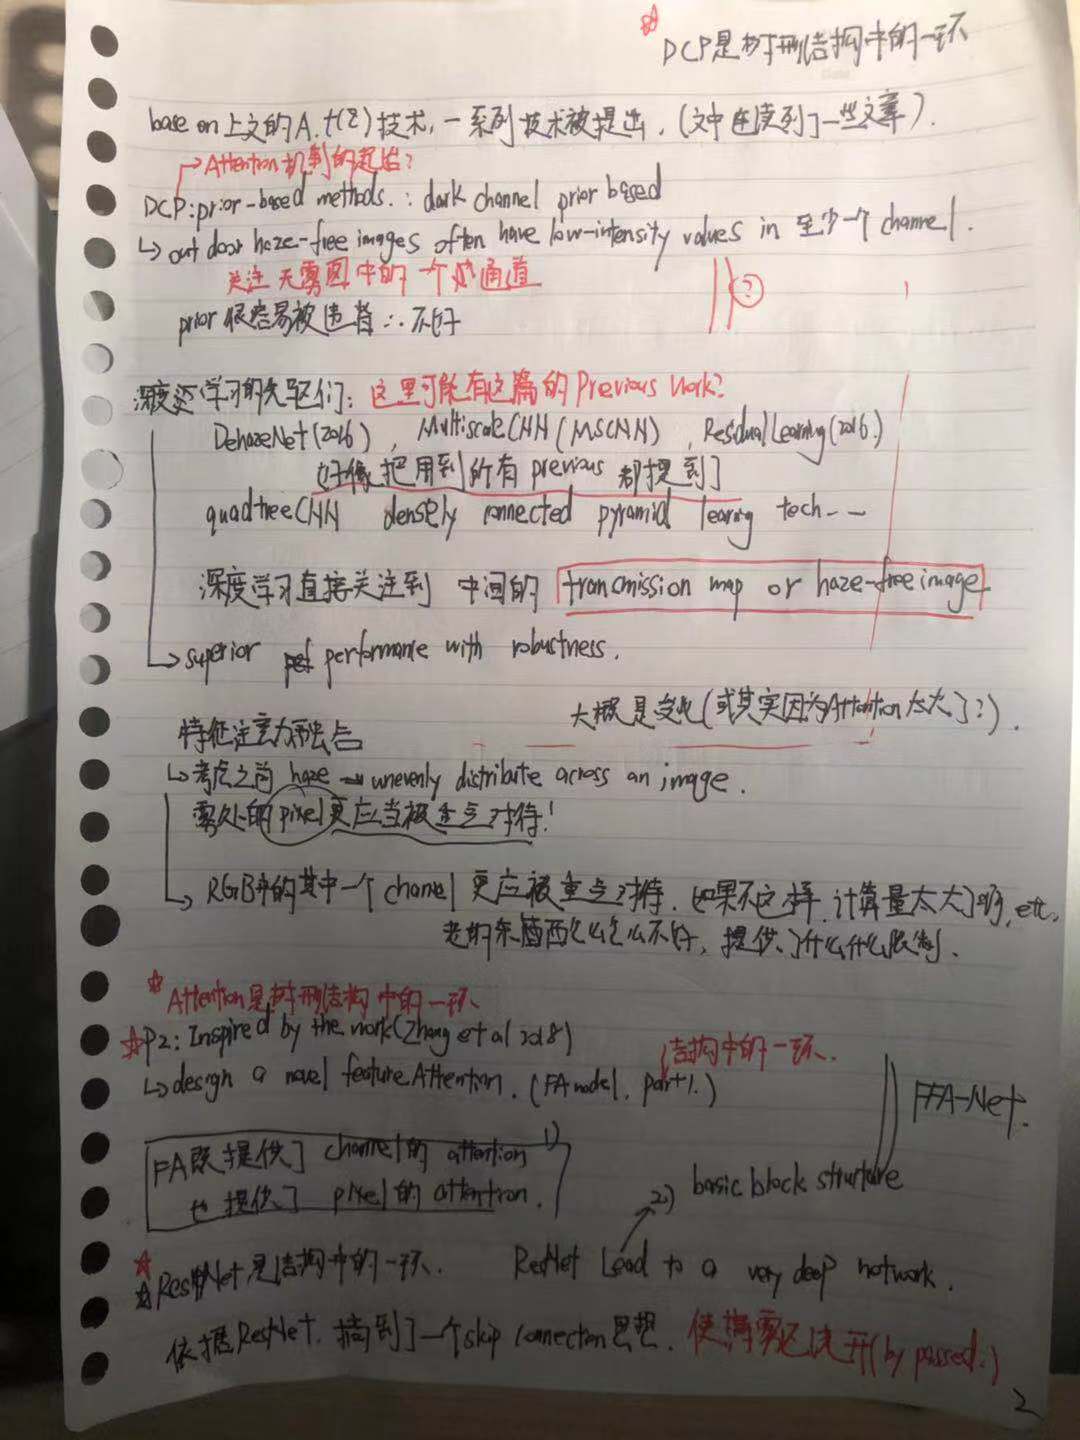 ☆ DCP是树形结构中的一环
base on 上文的A.t(z)技术,一系列技术被提出.(文中连续列了一些文章).
→Attention机制的起始?
DCP:prior-based methods.: dark channel prior based
↳ out door haze-free images often have low-intensity values in 至少一个 channel.
关注无雾图中的一个 通道
?
prior很容易被违背∴不好
深度学习的先驱们: 这里可能有这篇的Previous Work?
DehazeNet(2016), MultiscaleCNN(MSCNN), Residual Learning(2016.)
好像把用到所有previous都提到了
quadtreeCNN densely connected pyramid learning tech--
深度学习直接关注到 中间的 transmission map or haze-free image
→superior performance with robustness.
大概是变化(或其实因为Attention太大了?).
特征注意力融合
↳考虑之前 haze unevenly distribute across an image.
雾处的pixel更应当被重点对待!
↳ RGB中的其中一个channel更应被重点对待.如果不这样,计算量太大了啊,etc.
老的东西怎么怎么不好,提供了什么什么限制.
☆ Attention是树形结构中的一环
☆P2: Inspired by the work(Zhang et al 2018)
结构中的一环.
↳design a novel featureAttention.(FA model. part 1.)
FFA-Net.
FA既提供了 channel的 attention 1)
也提供了 pixel的attention.
2) basic block structure
☆ResNet是结构中的一环. ResNet Lead to a very deep network.
依据ResNet.搞到了一个skip connection思想. 使薄雾区 (by passed.)
2